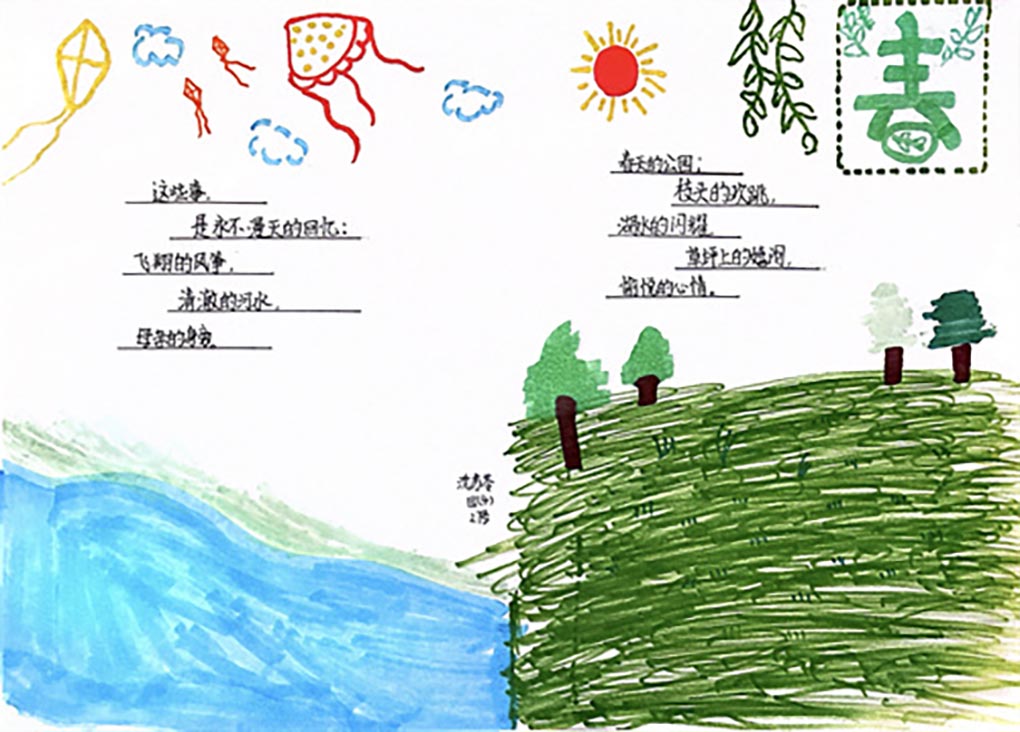 春
这些事,
是永不漫天的回忆:
飞翔的风筝,
清澈的河水,
母亲的身旁。
春天的公园:
枝头的欢跳,
湖水的闪耀
草坪上的嬉闹,
愉悦的心情。
四(4)
2号